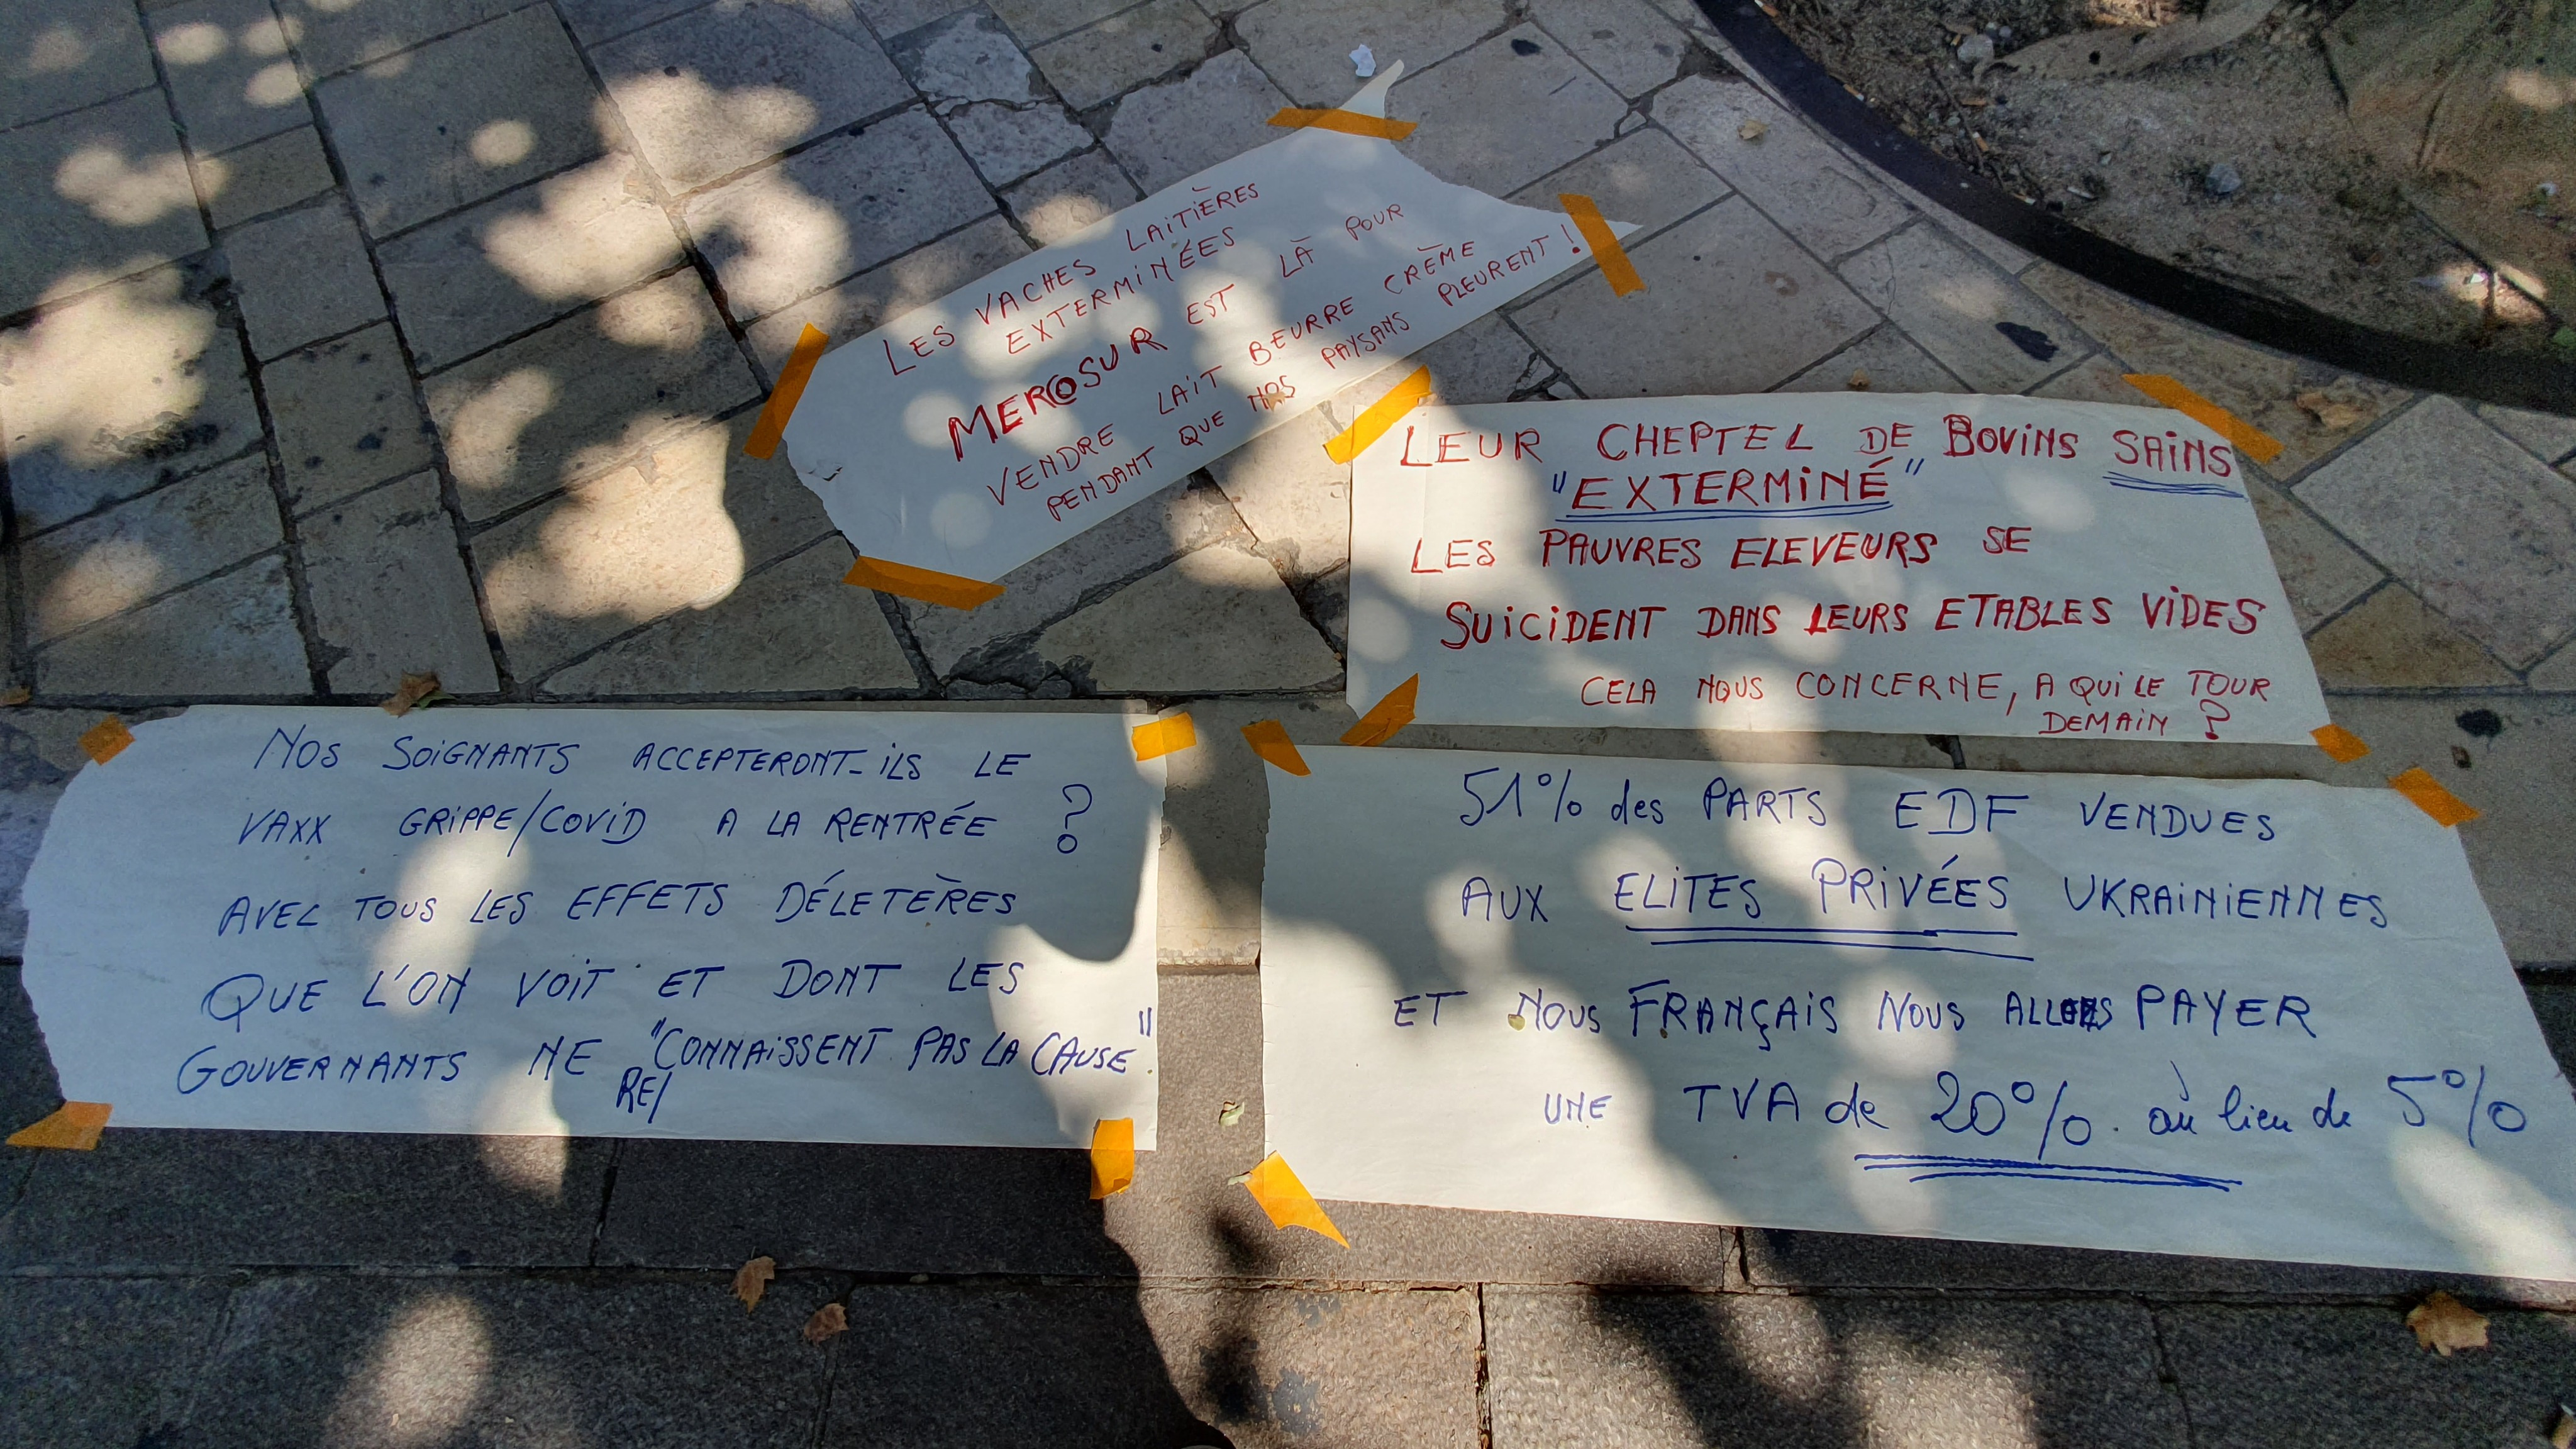 LES VACHES LAITIÈRES
EXTERMINÉES
MERCOSUR EST LÀ POUR
VENDRE LAIT BEURRE CRÈME
PENDANT QUE NOS PAYSANS PLEURENT !
LEUR CHEPTEL DE BOVINS SAINS
"EXTERMINÉ"
LES PAUVRES ELEVEURS SE
SUICIDENT DANS LEURS ETABLES VIDES
CELA NOUS CONCERNE, A QUI LE TOUR
DEMAIN ?
NOS SOIGNANTS ACCEPTERONT-ILS LE
VAXX GRIPPE/COVID A LA RENTRÉE ?
AVEC TOUS LES EFFETS DÉLETÈRES
QUE L'ON VOIT ET DONT LES
GOUVERNANTS NE "CONNAISSENT PAS LA CAUSE"
RE/
51% des PARTS EDF VENDUES
AUX ELITES PRIVÉES UKRAINIENNES
ET NOUS FRANÇAIS NOUS ALLONS PAYER
UNE TVA de 20% au lieu de 5%